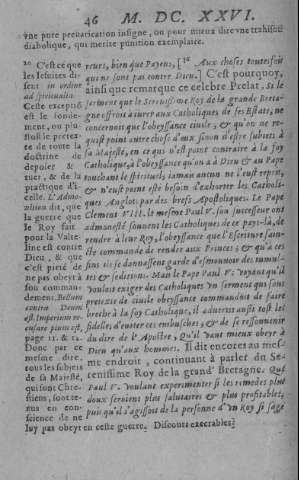 46 M. DC. XXVI.
vne pure preuarication insigne, ou pour mieux dire vne trahison
diabolique, qui merite punition exemplaire.
20 C'est ce que
les Iesuites di-
sent in ordine
ad spiritualia.
Ceste exceptiō
est le fonde-
ment, ou plu-
stost le pretex-
te de toute la
doctrine de
deposer &
tuer, & de la
practique d'i-
celle. L'Admo-
nition dit, que
la guerre que
le Roy fait
pour la Valte-
line est contre
Dieu, & que
c'est pieté de
ne pas obeyr à
son comman-
demen. Bellum
contra Deum
est. Imperium re-
cusare pium est,
page 11. & 12.
Donc par ce
mesme dire,
tous les subjets
de sa Majesté,
qui sont Chre-
stiens, sont te-
nus en con-
science de ne
luy pas obeyr en ceste guerre. Discours execrables]
reurs, bien que Payens, [20 Aux choses toutesfois
qui ne sont pas contre Dieu.] C'est pourquoy,
ainsi que remarque ce celebre Prelat, Si le
serment que le Serenissime Roy de la grand' Breta-
gne essrois à iurer aux Catholiques de ses Estats, ne
concernoit que l'obeyssance ciuile, & qu'on ne re-
quist point autre chose d'eux sinon d'estre subiets à
sa Majesté, en ce qui n'est point contraire à la foy
Catholique, à l'obeyssance qu'on a à Dieu & au Pape
touchant le spirituel, iamais aucun ne l'eust reietté
& n'eust point esté besoin d'exhorter les Catholi-
ques Anglois par des brefs Apostoliques. Le Pape
Clement VIII. le mesme Paul V. son successeur ont
admonesté souuent les Catholiques de ce pays-là, de
rendre à leur Roy, l'obeyssance que l'Escriture sain-
cte commande de rendre aux Princes; & qu'à ces
fins ils se donnassent garde d'esmouuoir des tumul-
tes & seditions. Mais le Pape Paul V. voyant qu'il
vouloit exiger des Catholiques vn serment qui sous
pretexte de ciuile obeyssance commandoit de faire
breche à la foy Catholique, il aduertit aussi tost les
fidelles d'euiter ces embusches, & de se ressouuenir
du dire de l'Apostre; Qu'il vaut mieux obeyr à
Dieu qu'aux hommes. Il dit encores au mes-
me endroit, continuant à parler du Se-
renissime Roy de la grand' Bretagne. Que
Paul V. voulant experimenter si les remedes plus
doux seroient plus salutaires & plus profitables,
puis qu'il s'agissoit de la personne d'vn Roy si sage